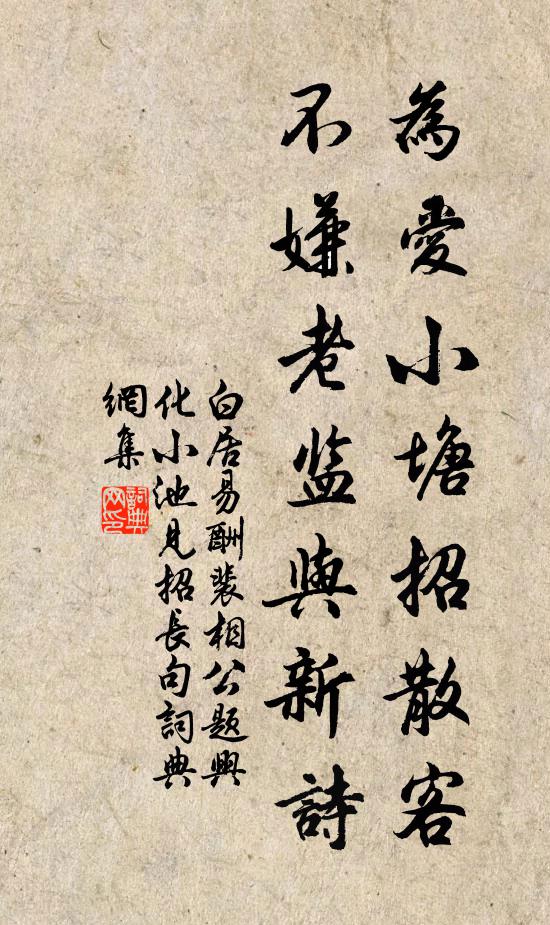 為愛小塘招散客
不嫌老监與新詩
白居易酬裴相公题興
化小池見招長句詞典
網集
詞典
网印